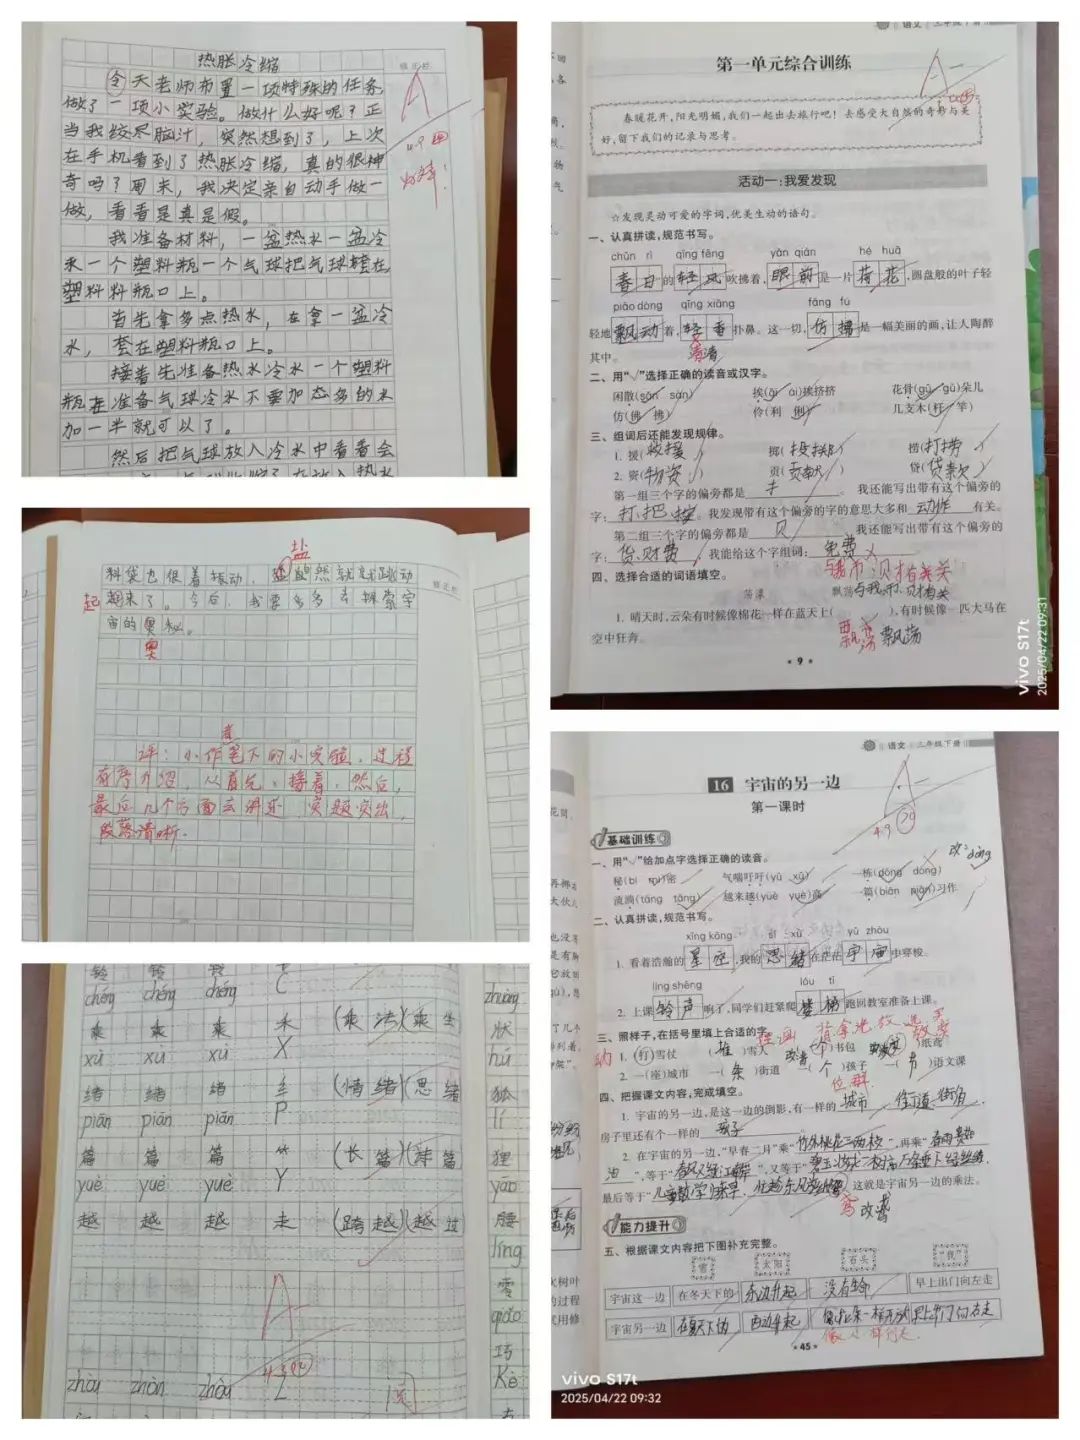 热胀冷缩
今天老师布置一项特殊的任务
做了一项小实验。做什么好呢？正
当我绞尽脑汁，突然想到了，上次
在手机看到了热胀冷缩，真的很神
奇吗？用来，我决定亲自动手做一
做，看看是真是假。
我准备材料，一盆热水一盆冷
水一个塑料瓶一个气球把气球套在
塑料料瓶口上。
首先拿多点热水，在拿一盆冷
水，套在塑料瓶口上。
接着先准备热水冷水一个塑料
瓶在准备气球冷水不要加态多的水
加一半就可以了。
然后把气球放入冷水中看看会
盐
料袋也很着振动，
起来了。今后，我要多多去探索宇
宙的奥秘。
奥
评：小作者笔下的小实验，过程
有序介绍，从首先、接着、然后、
最后几个方面去讲述，突出，
段落清晰。
chéng chéng chéng
乘 乘 乘 禾 (乘法)(乘坐
xù xù xù X
绪 绪 绪 纟 (情绪)(思绪
piān piān piān P
篇 篇 篇 (长篇)
yuè yuè yuè Y
越 越 越 走 (跨越)(越过
A
zhuàng
状
hú
狐
lí
狸
yāo
腰
líng
零
qiǎo
巧
语文 三年级下册
第一单元综合训练
春暖花开，阳光明媚，我们一起出去旅行吧！去感受大自然的奇妙与美
好，留下我们的记录与思考。
活动一：我爱发现
☆发现灵动可爱的字词，优美生动的语句。
一、认真拼读，规范书写。
chūn rì qīng fēng yǎn qián hé huā
春日的轻风吹拂着，眼前是一片荷花，圆盘般的叶子轻
piāo dòng qīng xiāng fǎng fú
轻地飘动着，轻香扑鼻。这一切，仿拂是一幅美丽的画，让人陶醉
其中。
二、用“√”选择正确的读音或汉字。
闲散(sǎn sàn) 挨(āi ái)挨挤挤 花骨(gū gǔ)朵儿
仿(佛 拂) 伶(利 俐) 几支木(杆 竿)
三、组词后还能发现规律。
1. 援(救援) 掷(投掷) 捞(打捞)
2. 资(物资) 贡(贡献) 贷(贷款)
第一组三个字的偏旁都是 扌 。我还能写出带有这个偏旁的
字：打、把、按。我发现带有这个偏旁的字的意思大多和 动作 有关。
第二组三个字的偏旁都是 贝 我还能写出带有这个偏旁的
字：货、财、费，我能给这个字组词：免费
四、选择合适的词语填空。
荡漾 飘荡
1. 晴天时，云朵有时候像棉花一样在蓝天上( )，有时候像一匹大马在
空中狂奔。 飘荡 飘荡
★ 9 ★
vivo S17t
2025/04/22 09:31
语文 三年级下册
16 宇宙的另一边
第一课时
基础训练
一、用“√”给加点字选择正确的读音。
秘(bì mì)密 气喘吁吁(yū xū) 一栋(dōng dòng)
改：dòng
流淌(tāng tǎng) 越来越(yüè yuè)高 一篇(biān piān)习作
二、认真拼读，规范书写。
xīng kōng sī xù yǔ zhòu
1. 看着浩瀚的星空，我的思绪在茫茫宇宙中穿梭。
líng shēng lóu tī
2. 上课铃声响了，同学们赶紧爬楼梯跑回教室准备上课。
三、照样子，在括号里填上合适的字。
1. (打)雪仗 (堆)雪人 ( )书包 ( )纸鸢
2. 一(座)城市 一(条)街道 一(个)孩子 一(节)语文课
四、把握课文内容，完成填空。
1. 宇宙的另一边，是这一边的倒影，有一样的 城市 、街道、街角，
房子里还有个一样的 孩子
2. 在宇宙的另一边，“早春二月”乘“竹外桃花三两枝”，再乘“春雨贵如
油”，等于“春风又绿江南岸”，又等于“碧玉妆成一树高万条垂下绿丝绦，
最后等于“儿童散学归来早，忙趁东风放纸鸢 这就是宇宙另一边的乘法。
能力提升
五、根据课文内容把下图补充完整。
雪 太阳 石头 “我”
宇宙这一边 在冬天下的 东边升起 没有生命 早上出门向左走
宇宙另一边 在夏天下的 西边升起
★ 45 ★
vivo S17t
2025/04/22 09:32